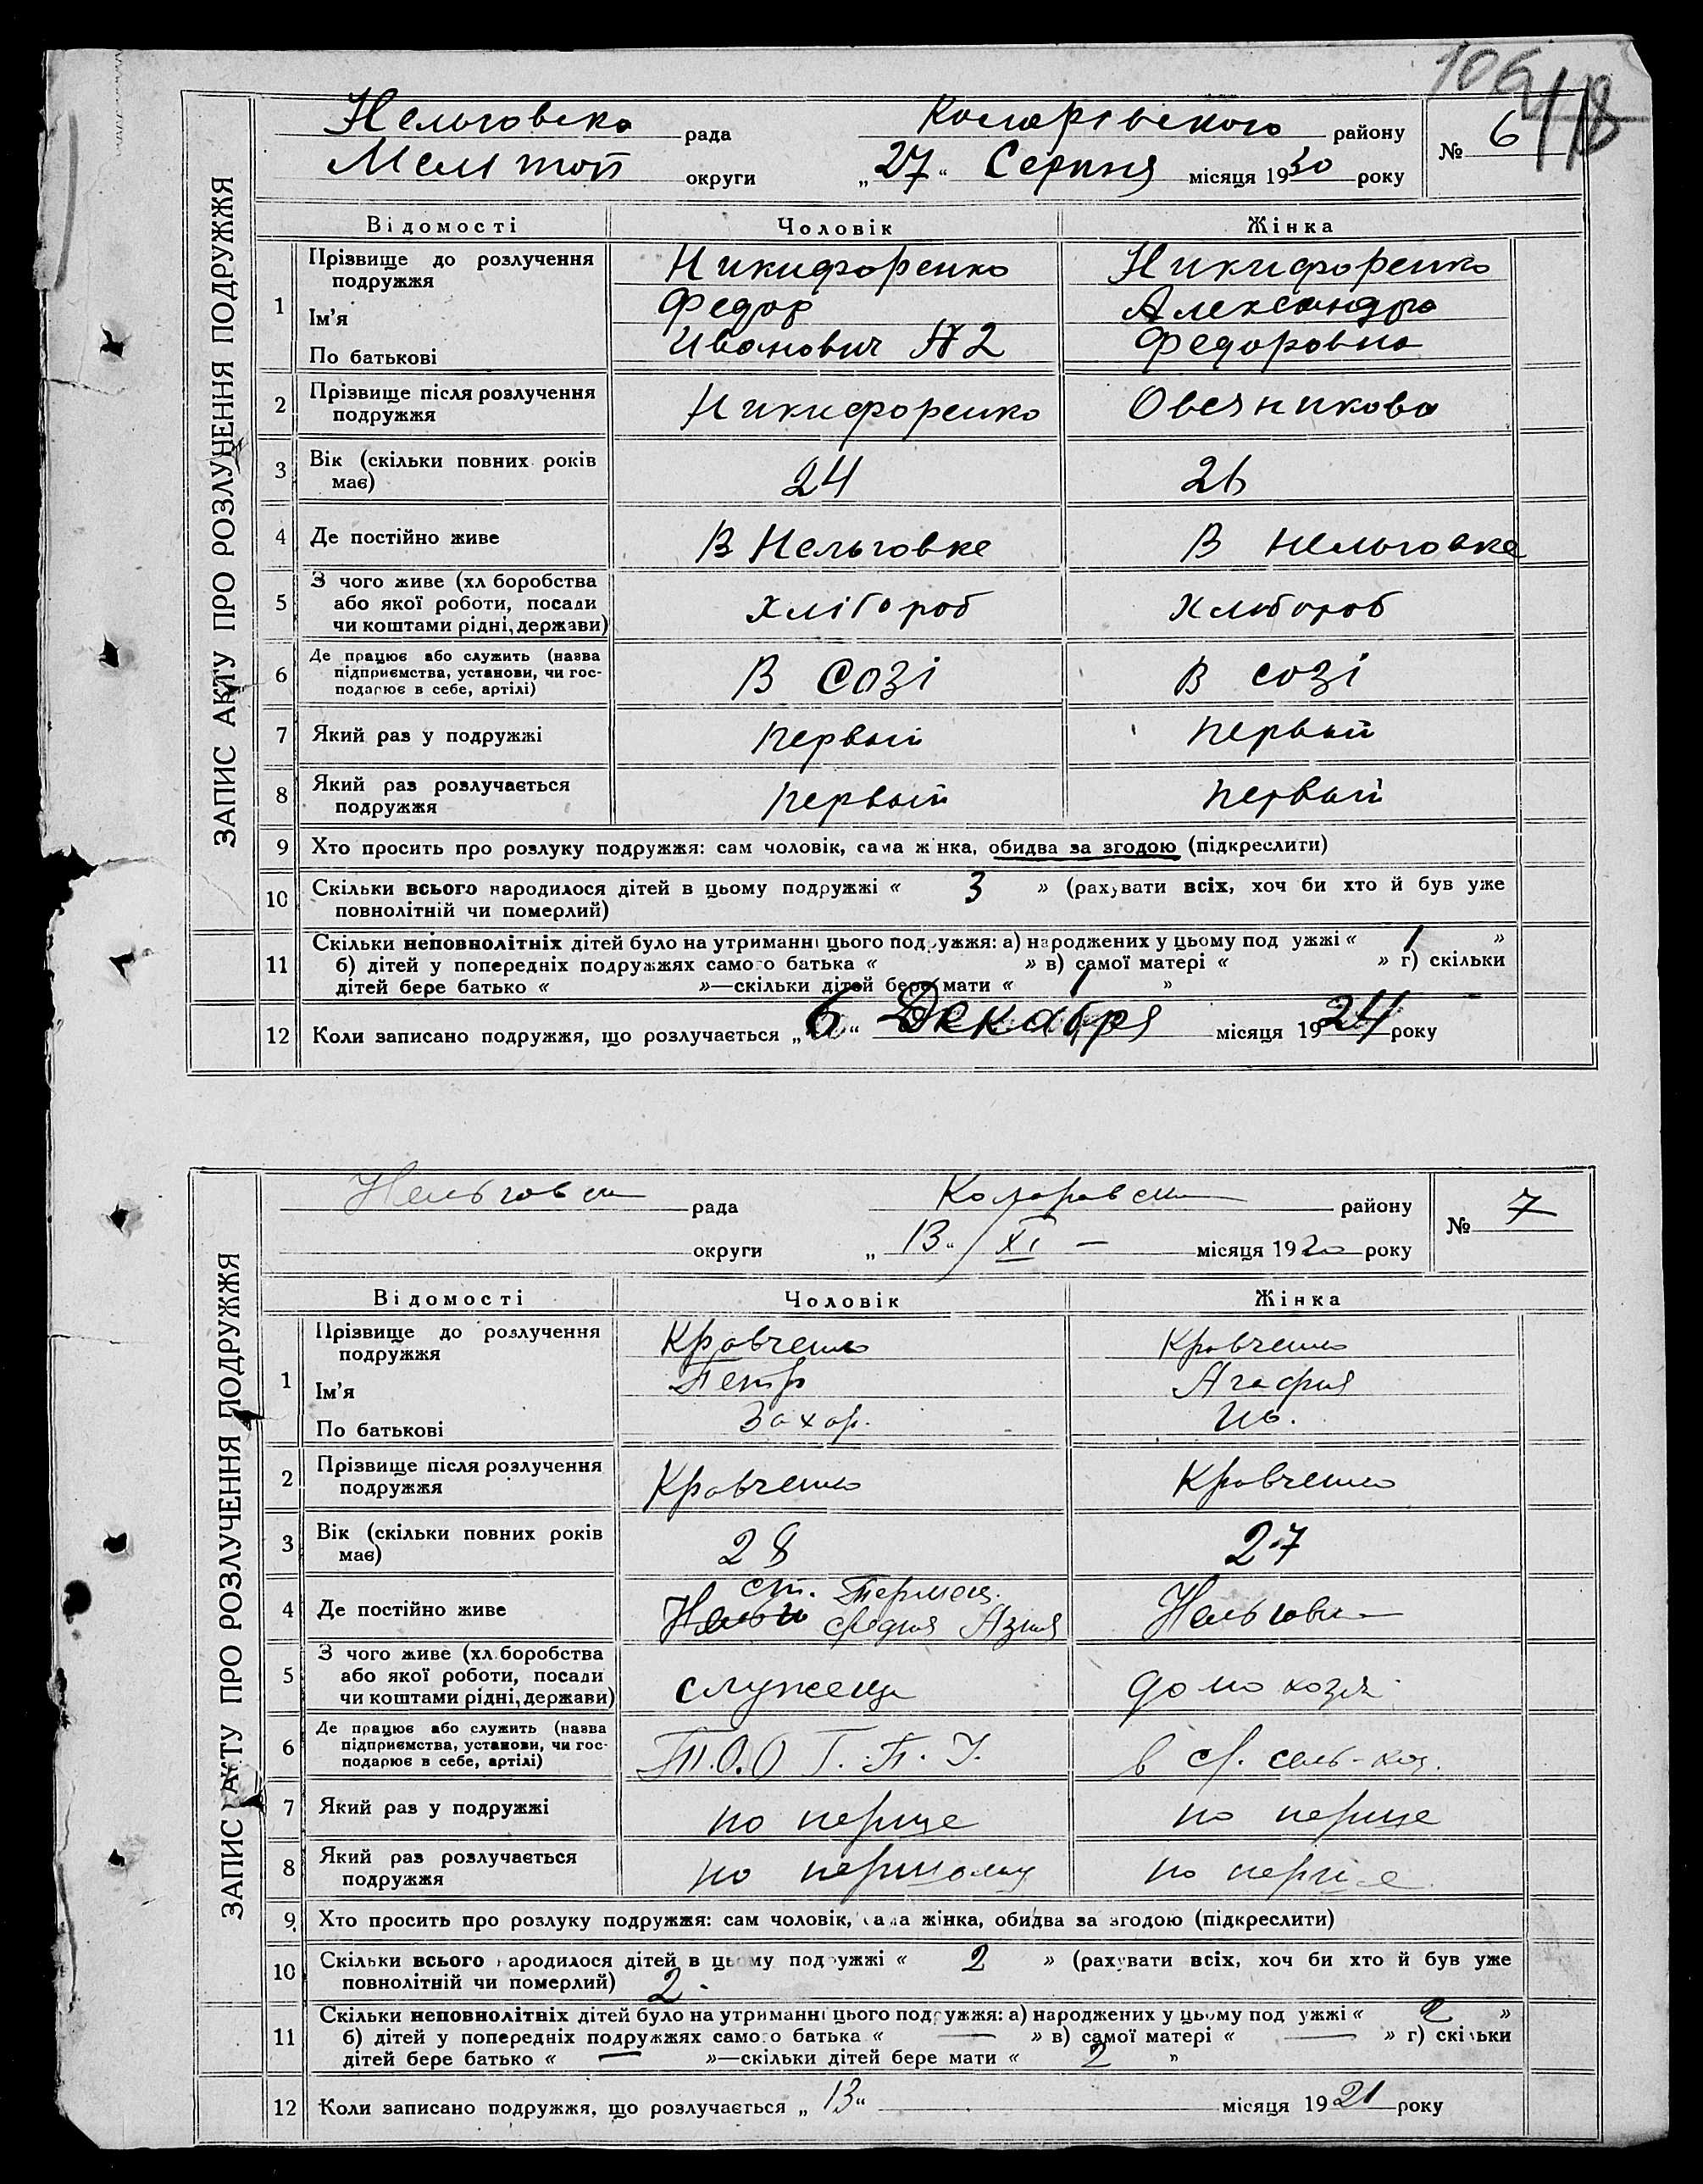 106
118
ЗАПИС АКТУ ПРО РОЗЛУЧЕННЯ ПОДРУЖЖЯ
Нельговска рада Коларівського району № 6
Мелітоп округи „27“ Серпня місяця 1930 року
Відомості Чоловік Жінка
1 Прізвище до розлучення подружжя Никифоренко Никифоренко
Ім'я Федор Александра
По батькові Иванович №2 Федоровна
2 Прізвище після розлучення подружжя Никифоренко Овечникова
3 Вік (скільки повних років має) 24 26
4 Де постійно живе В Нельговке В Нельговке
5 З чого живе (хл боробства або якої роботи, посади чи коштами рідні, держави) Хлібороб Хлібороб
6 Де працює або служить (назва підприємства, установи, чи господарює в себе, артілі) В Созі В созі
7 Який раз у подружжі первый первый
8 Який раз розлучається подружжя первый первый
9 Хто просить про розлуку подружжя: сам чоловік, сама жінка, обидва за згодою (підкреслити)
10 Скільки всього народилося дітей в цьому подружжі « 3 » (рахувати всіх, хоч би хто й був уже
повнолітній чи померлий)
11 Скільки неповнолітніх дітей було на утриманні цього подружжя: а) народжених у цьому подружжі « 1 »
б) дітей у попередніх подружжях самого батька « » в) самої матері « » г) скільки
дітей бере батько « »—скільки дітей бере мати « 1 »
12 Коли записано подружжя, що розлучається „6“ Декабря місяця 1924 року
ЗАПИС АКТУ ПРО РОЗЛУЧЕННЯ ПОДРУЖЖЯ
Нельговск рада Коларовск району № 7
округи „13“ / XI — місяця 1930 року
Відомості Чоловік Жінка
1 Прізвище до розлучення подружжя Кравченко Кравченко
Ім'я Петр Агафия
По батькові Захар. Ив.
2 Прізвище після розлучення подружжя Кравченко Кравченко
3 Вік (скільки повних років має) 28 27
4 Де постійно живе ст. Термез. Средня Азия Нельговк
5 З чого живе (хл. боробства або якої роботи, посади чи коштами рідні, держави) служещ домохозя.
6 Де працює або служить (назва підприємства, установи, чи господарює в себе, артілі) Т.О.О Г.П.У. в с/. сель-хоз.
7 Який раз у подружжі по перше по перше
8 Який раз розлучається подружжя по першому по перше
9 Хто просить про розлуку подружжя: сам чоловік, сама жінка, обидва за згодою (підкреслити)
10 Скільки всього народилося дітей в цьому подружжі « 2 » (рахувати всіх, хоч би хто й був уже
повнолітній чи померлий) 2.
11 Скільки неповнолітніх дітей було на утриманні цього подружжя: а) народжених у цьому подружжі « 2 »
б) дітей у попередніх подружжях самого батька « — » в) самої матері « — » г) скільки
дітей бере батько « — »—скільки дітей бере мати « 2 »
12 Коли записано подружжя, що розлучається „13“ місяця 1921 року